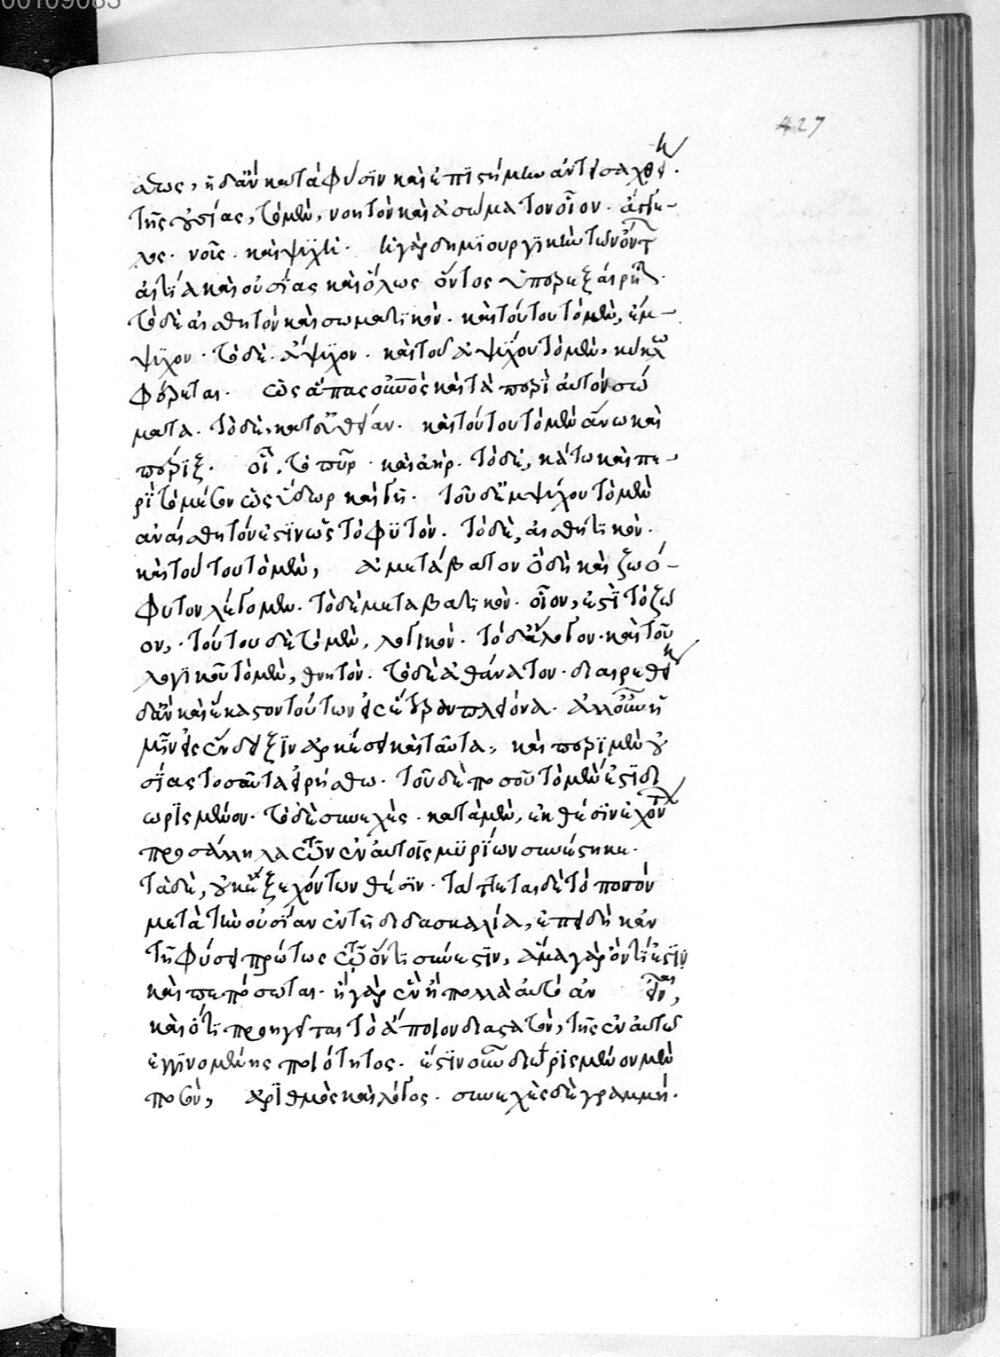 00109083
427
ἄλλως, ἢ δ' ἂν κατὰ φύσιν καὶ ἐπιστήμην ἀντεισαχθείη.
τῆς οὐσίας, τὸ μὲν, νοητὸν καὶ ἀσώματον οἷον. ἄγγε-
λος. νοῦς. καὶ ψυχή. ἡ γὰρ δημιουργικὴ τῶν ὄντων
αἰτία καὶ οὐσίας καὶ ὅλως ὄντος ὑπερεξαίρηται.
τὸ δὲ αἰσθητὸν καὶ σωματικόν. καὶ τούτου τὸ μὲν, ἔμ-
ψυχον. τὸ δὲ ἄψυχον. καὶ τοῦ ἀψύχου τὸ μὲν, κύκλῳ
φέρεται. ὡς ἅπας οὐρανὸς καὶ τὰ περὶ αὐτὸν σώ
ματα. τὸ δὲ, κατ' εὐθεῖαν. καὶ τούτου τὸ μὲν ἄνω καὶ
πέριξ. οἷον, τὸ πῦρ. καὶ ἀήρ. τὸ δὲ, κάτω καὶ πε-
ρὶ τὸ μέσον ὡς ὕδωρ καὶ γῆ. τοῦ δ' ἐμψύχου τὸ μὲν
ἀναίσθητόν ἐστιν ὡς τὸ φυτόν. τὸ δὲ, αἰσθητικόν.
καὶ τούτου τὸ μὲν, ἀμετάβατον ὃ δὴ καὶ ζωό-
φυτον λέγομεν. τὸ δὲ μεταβατικόν. οἷον, ἐστὶ τὸ ζῶ
ον. τούτου δὲ τὸ μὲν, λογικόν. τὸ δ' ἄλογον. καὶ τοῦ
λογικοῦ τὸ μὲν, θνητόν. τὸ δὲ ἀθάνατον. διαιρεθείη
δ' ἂν καὶ ἕκαστον τούτων εἰς ἕτερα πλείονα. ἀλλ' οὖν ἡ
μῖν εἰς ἔνδειξιν ἀρκέσει καὶ ταῦτα. καὶ περὶ μὲν οὐ
σίας τοσαῦτα εἰρήσθω. τοῦ δὲ ποσοῦ τὸ μὲν ἐστὶ δι
ωρισμένον. τὸ δὲ συνεχές. κατὰ μὲν, ἐκ θέσιν ἐχόντων
πρὸς ἄλληλα τῶν ἐν αὐτοῖς μορίων συνέστηκε.
τὰ δὲ, οὐκ ἐξ ἐχόντων θέσιν. τάττεται δὲ τὸ ποσὸν
μετὰ τὴν οὐσίαν ἐν τῇ διδασκαλίᾳ, ἐπειδὴ κἂν
τῇ φύσει πρώτως τῷ ὄντι σύνεστιν, ἅμα γὰρ ὄν τί ἐστιν
καὶ πεπόσωται. ἢ γὰρ ἓν ἢ πολλὰ αὐτὸ ἂν εἴπῃς,
καὶ ὅτι προηγεῖται τὸ ἄποιον διαστατὸν, τῆς ἐν αὐτῷ
ἐγγινομένης ποιότητος. ἔστιν οὖν διωρισμένον μὲν
ποσὸν, ἀριθμὸς καὶ λόγος. συνεχὲς δὲ γραμμή.